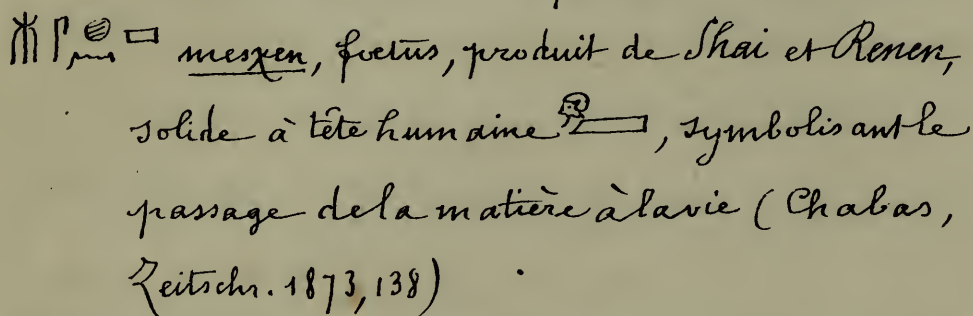 𓄟𓋴𓐍𓈖𓈙 mesχen, fœtus, produit de Shai et Renen,
solide à tête humaine, symbolisant le
passage de la matière à la vie (Chabas,
Zeitschr. 1873, 138)